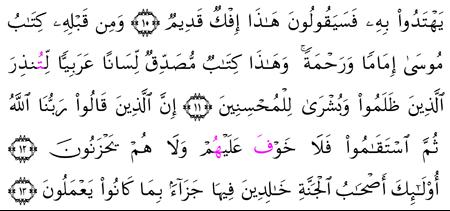 يَهْتَدُوا۟ بِهِۦ فَسَيَقُولُونَ هَـٰذَآ إِفْكٌ قَدِيمٌ ۝١٠ وَمِن قَبْلِهِۦ كِتَـٰبُ
مُوسَىٰٓ إِمَامًا وَرَحْمَةً ۚ وَهَـٰذَا كِتَـٰبٌ مُّصَدِّقٌ لِّسَانًا عَرَبِيًّا لِّتُنذِرَ
ٱلَّذِينَ ظَلَمُوا۟ وَبُشْرَىٰ لِلْمُحْسِنِينَ ۝١١ إِنَّ ٱلَّذِينَ قَالُوا۟ رَبُّنَا ٱللَّهُ
ثُمَّ ٱسْتَقَـٰمُوا۟ فَلَا خَوْفَ عَلَيْهُمْ وَلَا هُمْ يَحْزَنُونَ ۝١٢
أُو۟لَـٰٓئِكَ أَصْحَـٰبُ ٱلْجَنَّةِ خَـٰلِدِينَ فِيهَا جَزَآءًۢ بِمَا كَانُوا۟ يَعْمَلُونَ ۝١٣